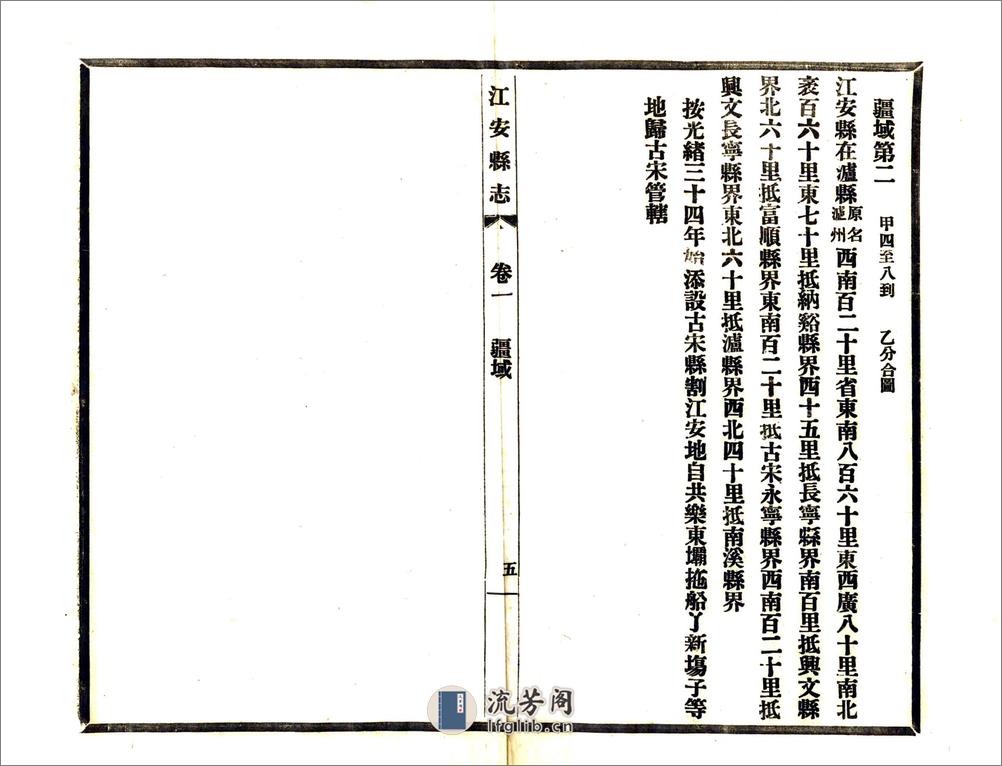 疆域第二 甲四至八到 乙分合圖
江安縣在瀘縣原名瀘州西南百二十里省東南八百六十里東西廣八十里南北
袤百六十里東七十里抵納谿縣界西十五里抵長寧縣界南百里抵興文縣
界北六十里抵富順縣界東南百二十里抵古宋永寧縣界西南百二十里抵
興文長寧縣界東北六十里抵瀘縣界西北四十里抵南溪縣界
按光緒三十四年始添設古宋縣割江安地自共樂東壩拖船丫新塲子等
地歸古宋管轄
江安縣志 卷一 疆域 五
流芳阁
lfglib.cn